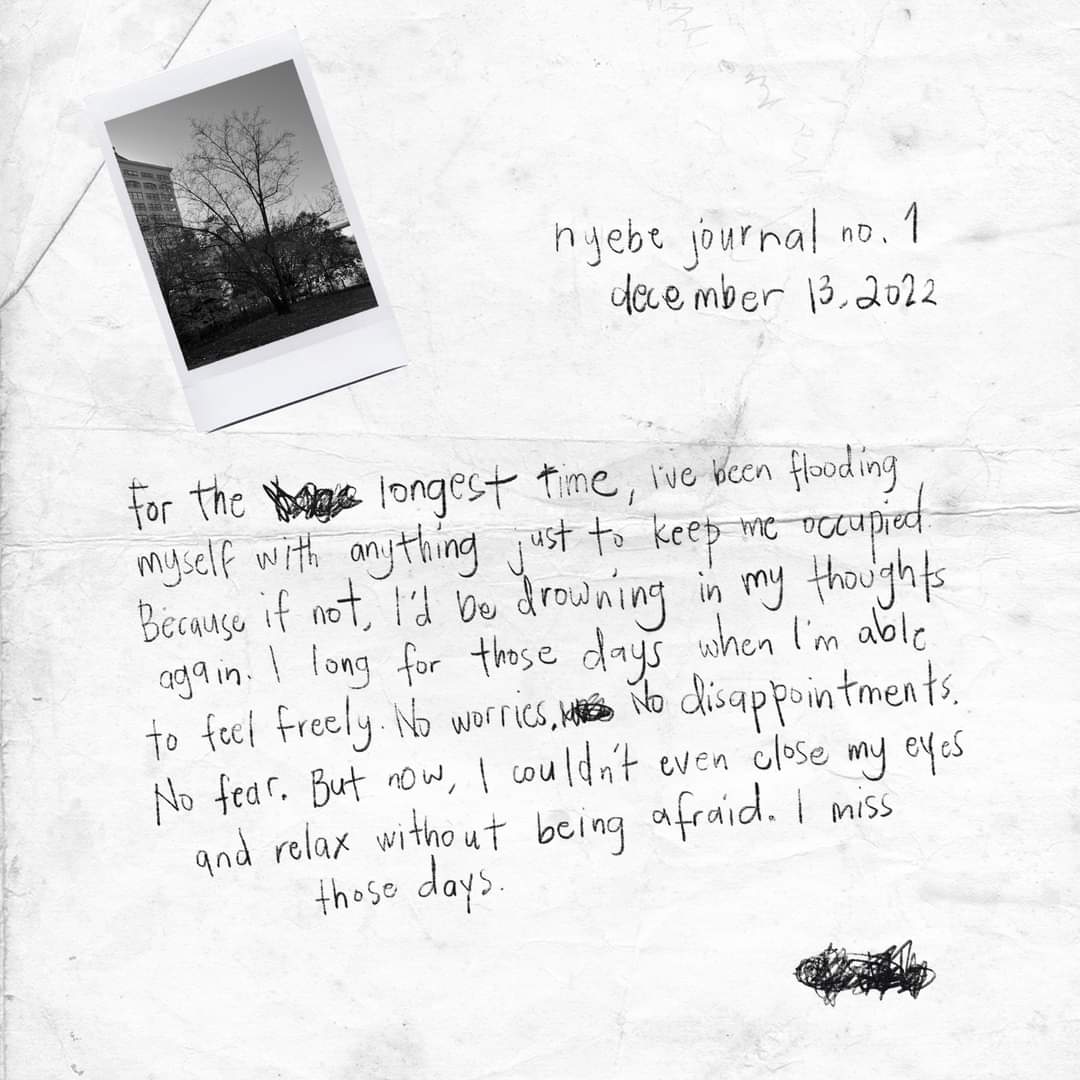 nyebe journal no. 1
december 13, 2022
For the longest time, i've been flooding
myself with anything just to keep me occupied.
Because if not, I'd be drowning in my thoughts
again. I long for those days when I'm able
to feel freely. No worries. No disappointments.
No fear. But now, I couldn't even close my eyes
and relax without being afraid. I miss
those days.